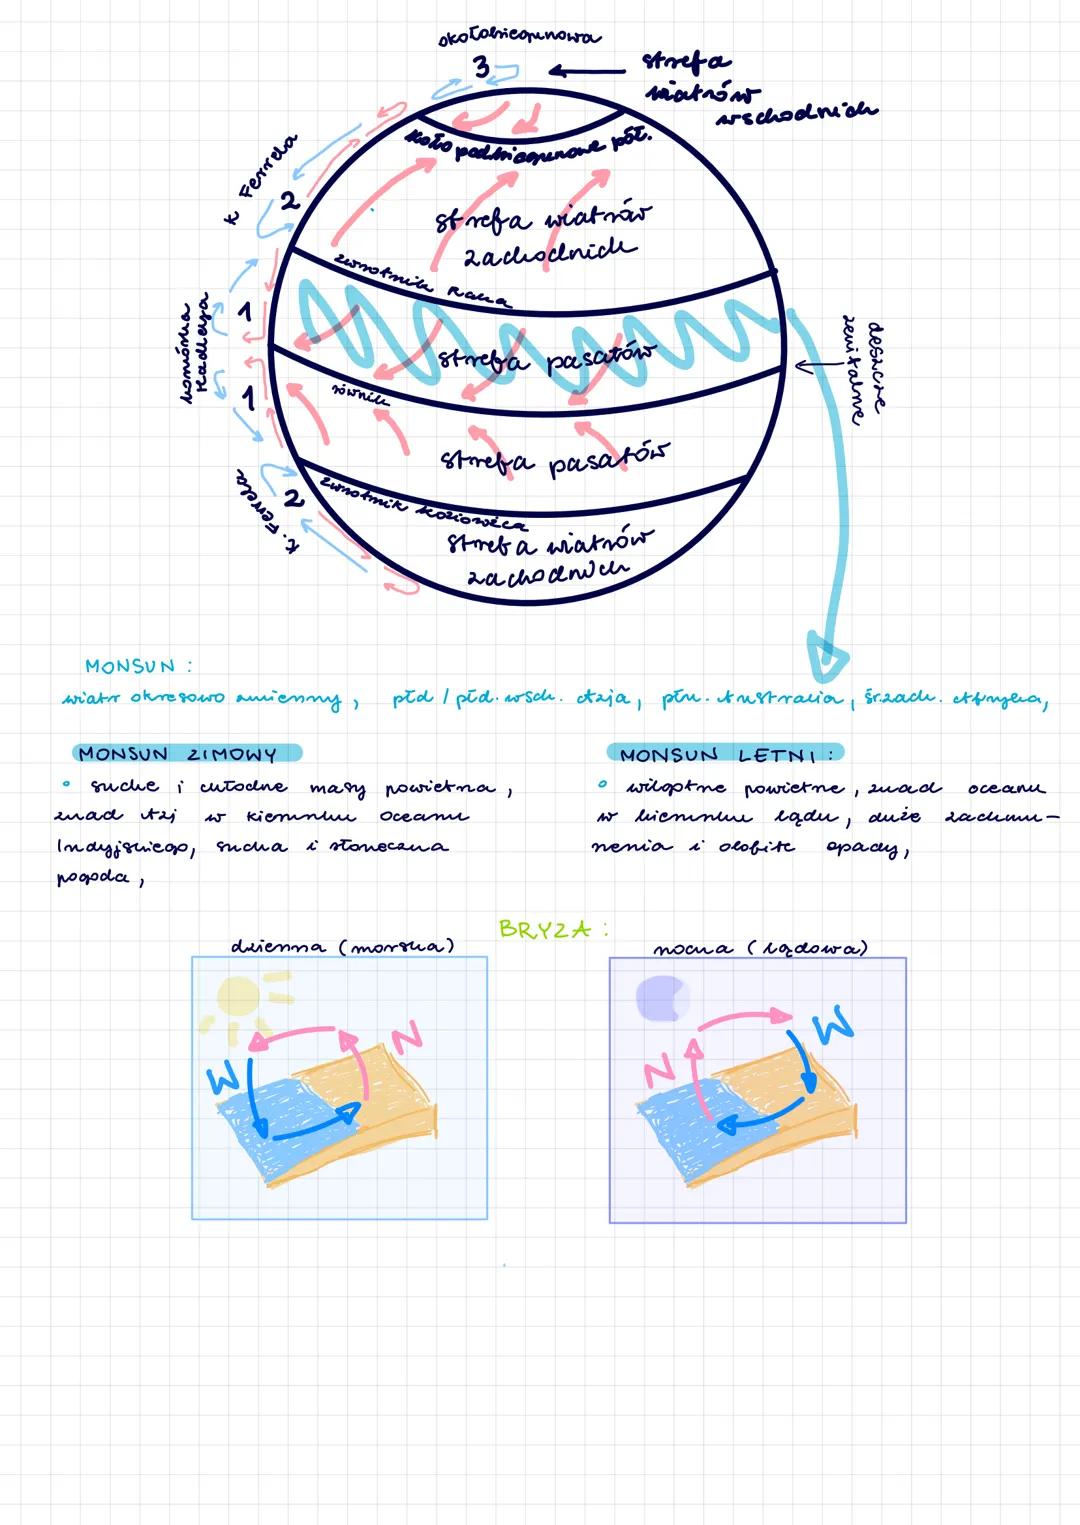 okołobiegunowa
3
strefa
wiatrów
wschodnich
koło podbiegunowe płł.
K Ferrela
2
strefa wiatrów
zachodnich
zwrotnik Raka
komórka
Hadleya
1
strefa pasatów
deszcze
zenitalne
równik
1
strefa pasatów
K. Ferrela
2
zwrotnik koziorożca
strefa wiatrów
zachodnich
MONSUN :
wiatr okresowo zmienny, płd / płd. wsch. Azja, płn. Australia, śr. zach. Afryka,
MONSUN ZIMOWY
• suche i chłodne masy powietrza,
znad Azj w kierunku Oceanu
Indyjskiego, sucha i słoneczna
pogoda,
MONSUN LETNI :
• wilgotne powietrze, znad oceanu
w kierunku lądu, duże zachmu-
rzenia i obfite opady,
BRYZA :
dzienna (morska)
nocna (lądowa)
W
N
N
W